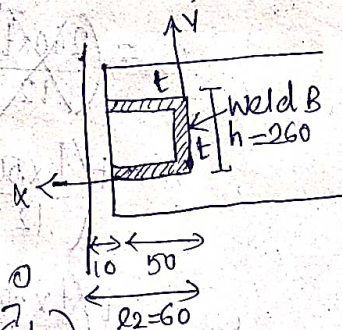 Y
t
Weld B
h=260
t
x
10 50
l2=60